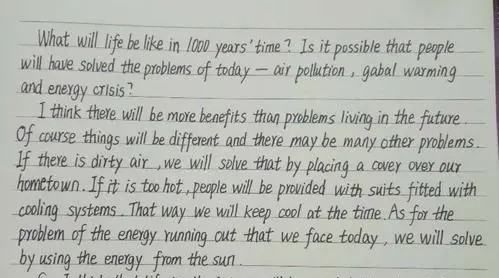 What will life be like in 1000 years' time? Is it possible that people
will have solved the problems of today — air pollution, gabal warming
and energy crisis?
I think there will be more benefits than problems living in the future.
Of course things will be different and there may be many other problems.
If there is dirty air, we will solve that by placing a cover over our
hometown. If it is too hot, people will be provided with suits fitted with
cooling systems. That way we will keep cool at the time. As for the
problem of the energy running out that we face today, we will solve
by using the energy from the sun.